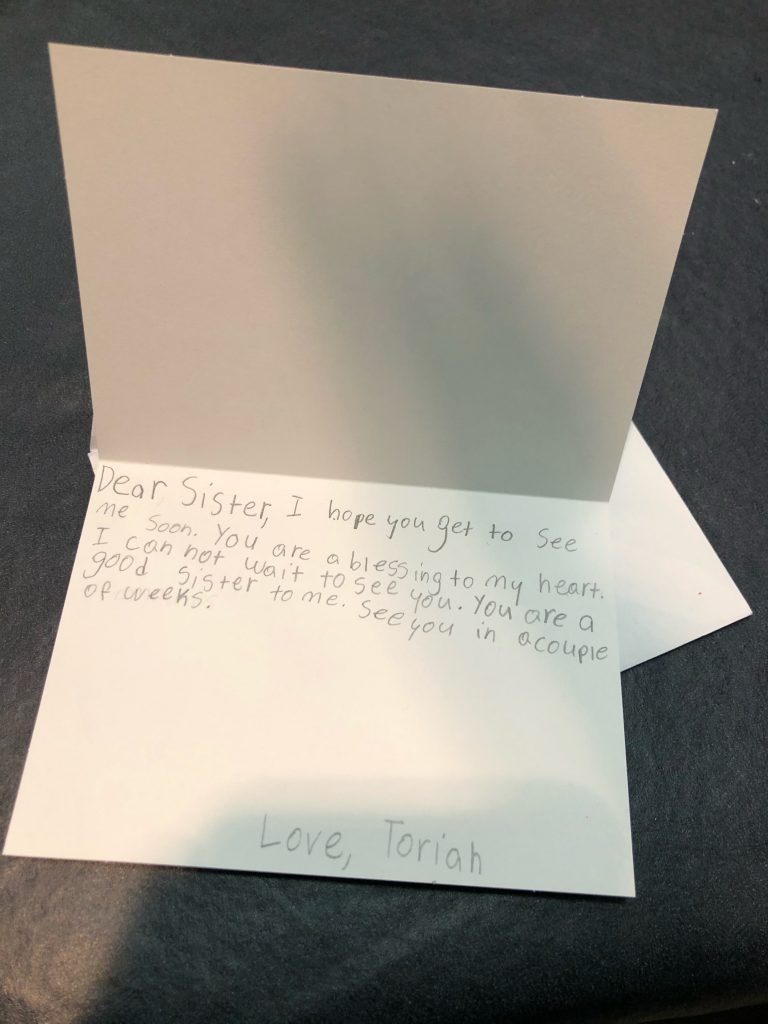 Dear Sister, I hope you get to see
me soon. You are a blessing to my heart.
I can not wait to see you. You are a
good sister to me. See you in a couple
of weeks.
Love, Toriah